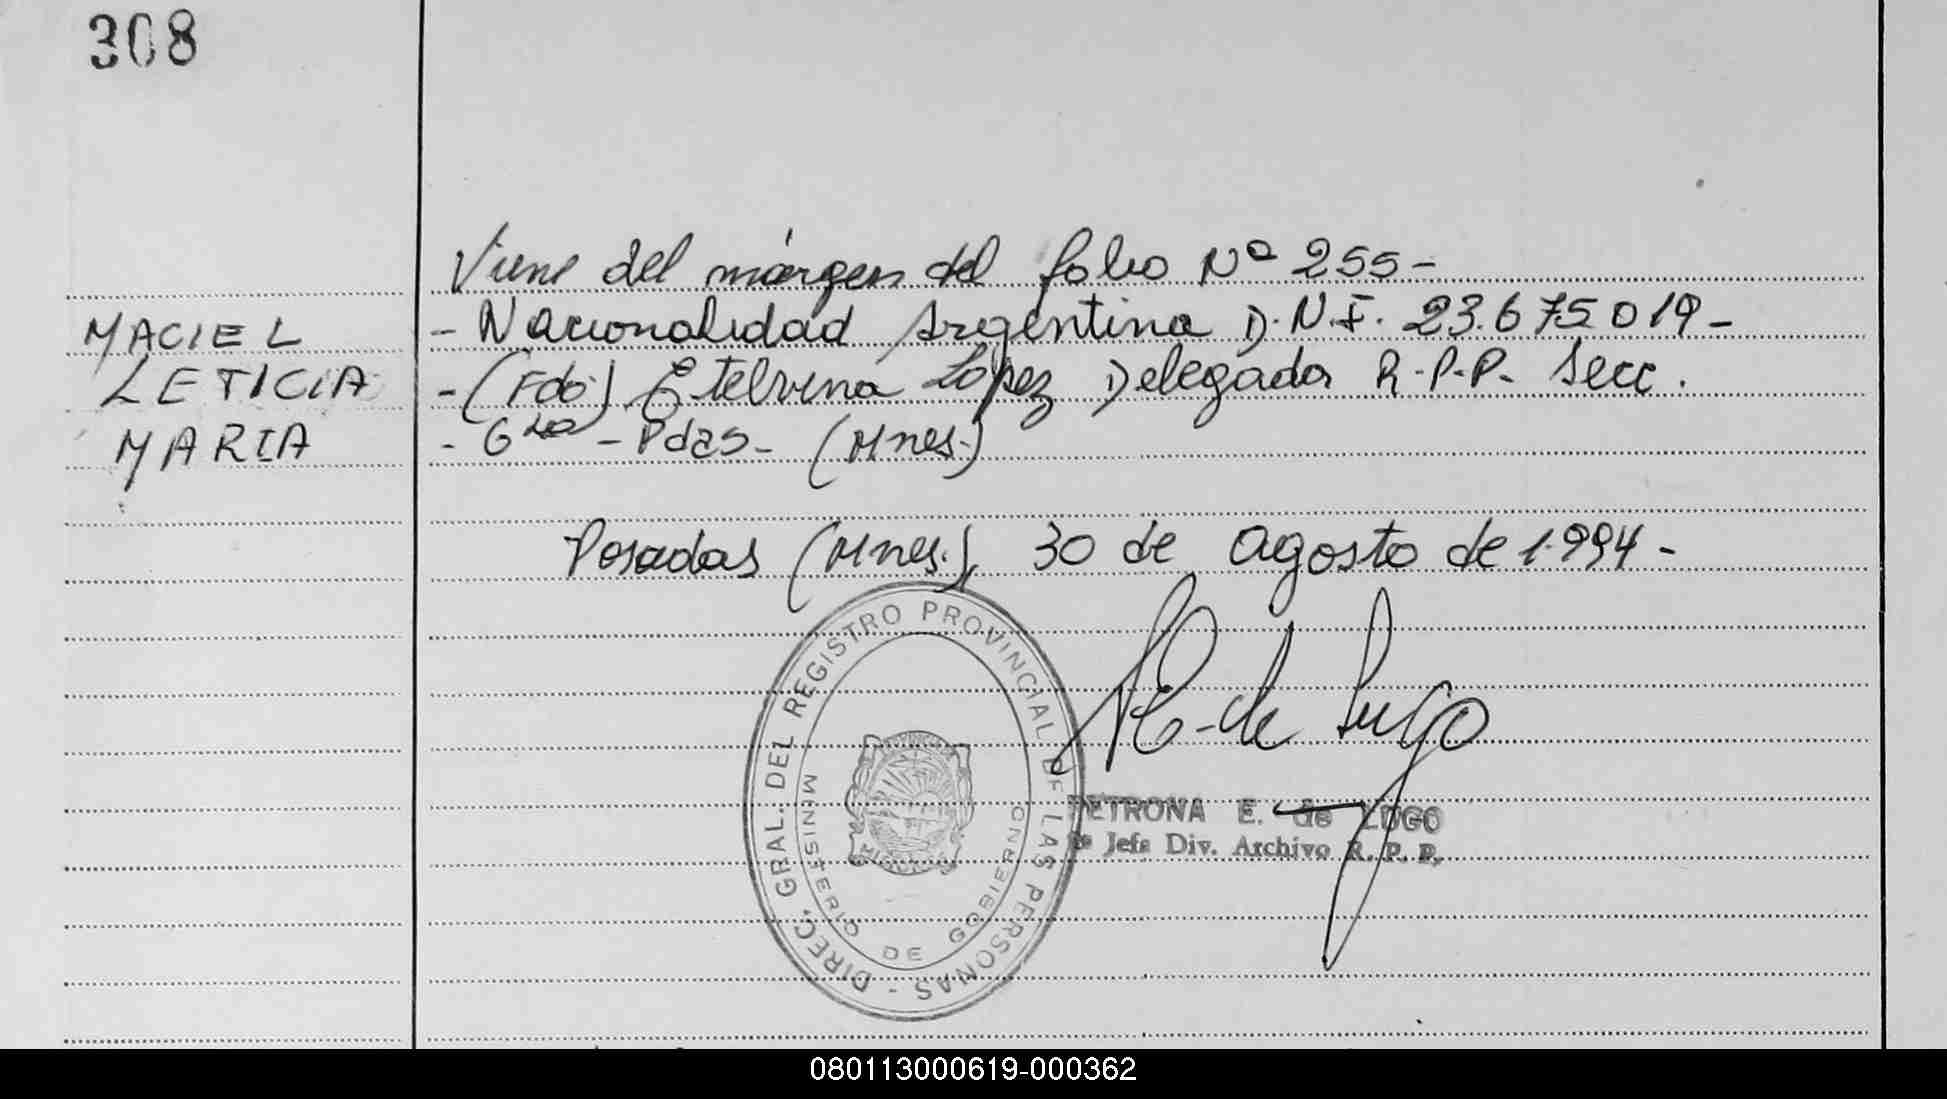 308
Viene del márgen del folio Nº 255-
MACIEL
- Nacionalidad Argentina D.N.I. 23.675019-
LETICIA
-(Fdo) Etelvina López Delegada R.P.P. Secc.
MARIA
- Gdo - Pdas- (Mnes.)
Posadas (Mnes.), 30 de Agosto de 1.994-
DIREC. GRAL. DEL REGISTRO PROVINCIAL DE LAS PERSONAS -
MINISTERIO DE GOBIERNO
PROVINCIA
E. de Lugo
PETRONA E. de LUGO
Jefa Div. Archivo R. P. P.
080113000619-000362